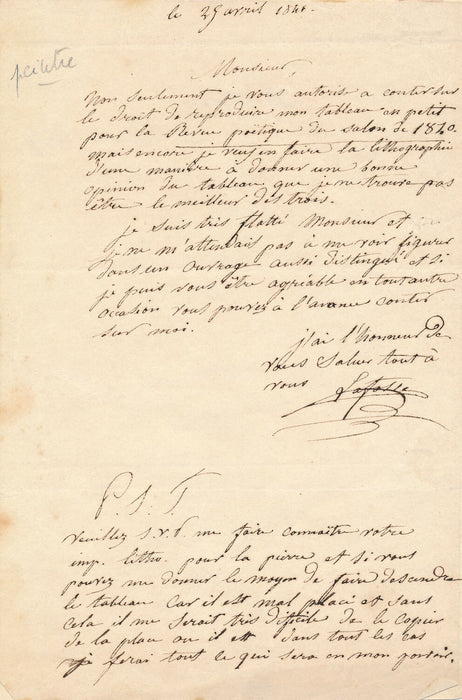 le 25 avril 1840.
peintre
Monsieur,
Non seulement je vous autorise a contir sur
le droit de reproduire mon tableau en petit
pour la Revue poètique du salon de 1840.
mais encore je veux en faire la lithographie
d'une manière à donner une bonne
opinion du tableau que je ne trouve pas
être le meilleur des trois.
je suis très flatté Monsieur et
je ne m'attendais pas à me voir figurer
dans un ouvrage aussi distingué et si
je puis vous être agréable en tout autre
occasion vous pouvez à l'avance contir
sur moi.
j'ai l'honneur de
vous saluer tout à
vous Lafosse
P. S. T.
veuillez S.V.P. me faire connaître votre
imp. litho. pour la pierre et si vous
pouvez me donner le moyen de faire descendre
le tableau car il est mal placé et sans
cela il me serait très difficile de le copier
de la place ou il est dans tout les cas
je ferai tout ce qui sera en mon pouvoir.